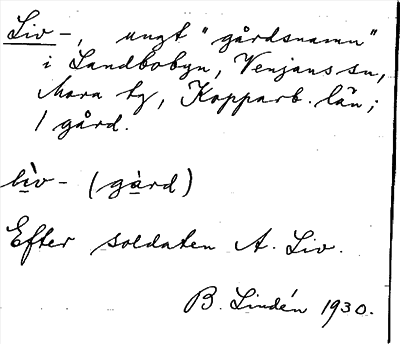 Liv-, ungt "gårdsnamn"
i Landbobyn, Venjans sn,
Mora tg, Kopparb. län;
1 gård.
lìv- (gàrd)
Efter soldaten A. Liv.
B. Lindén 1930.